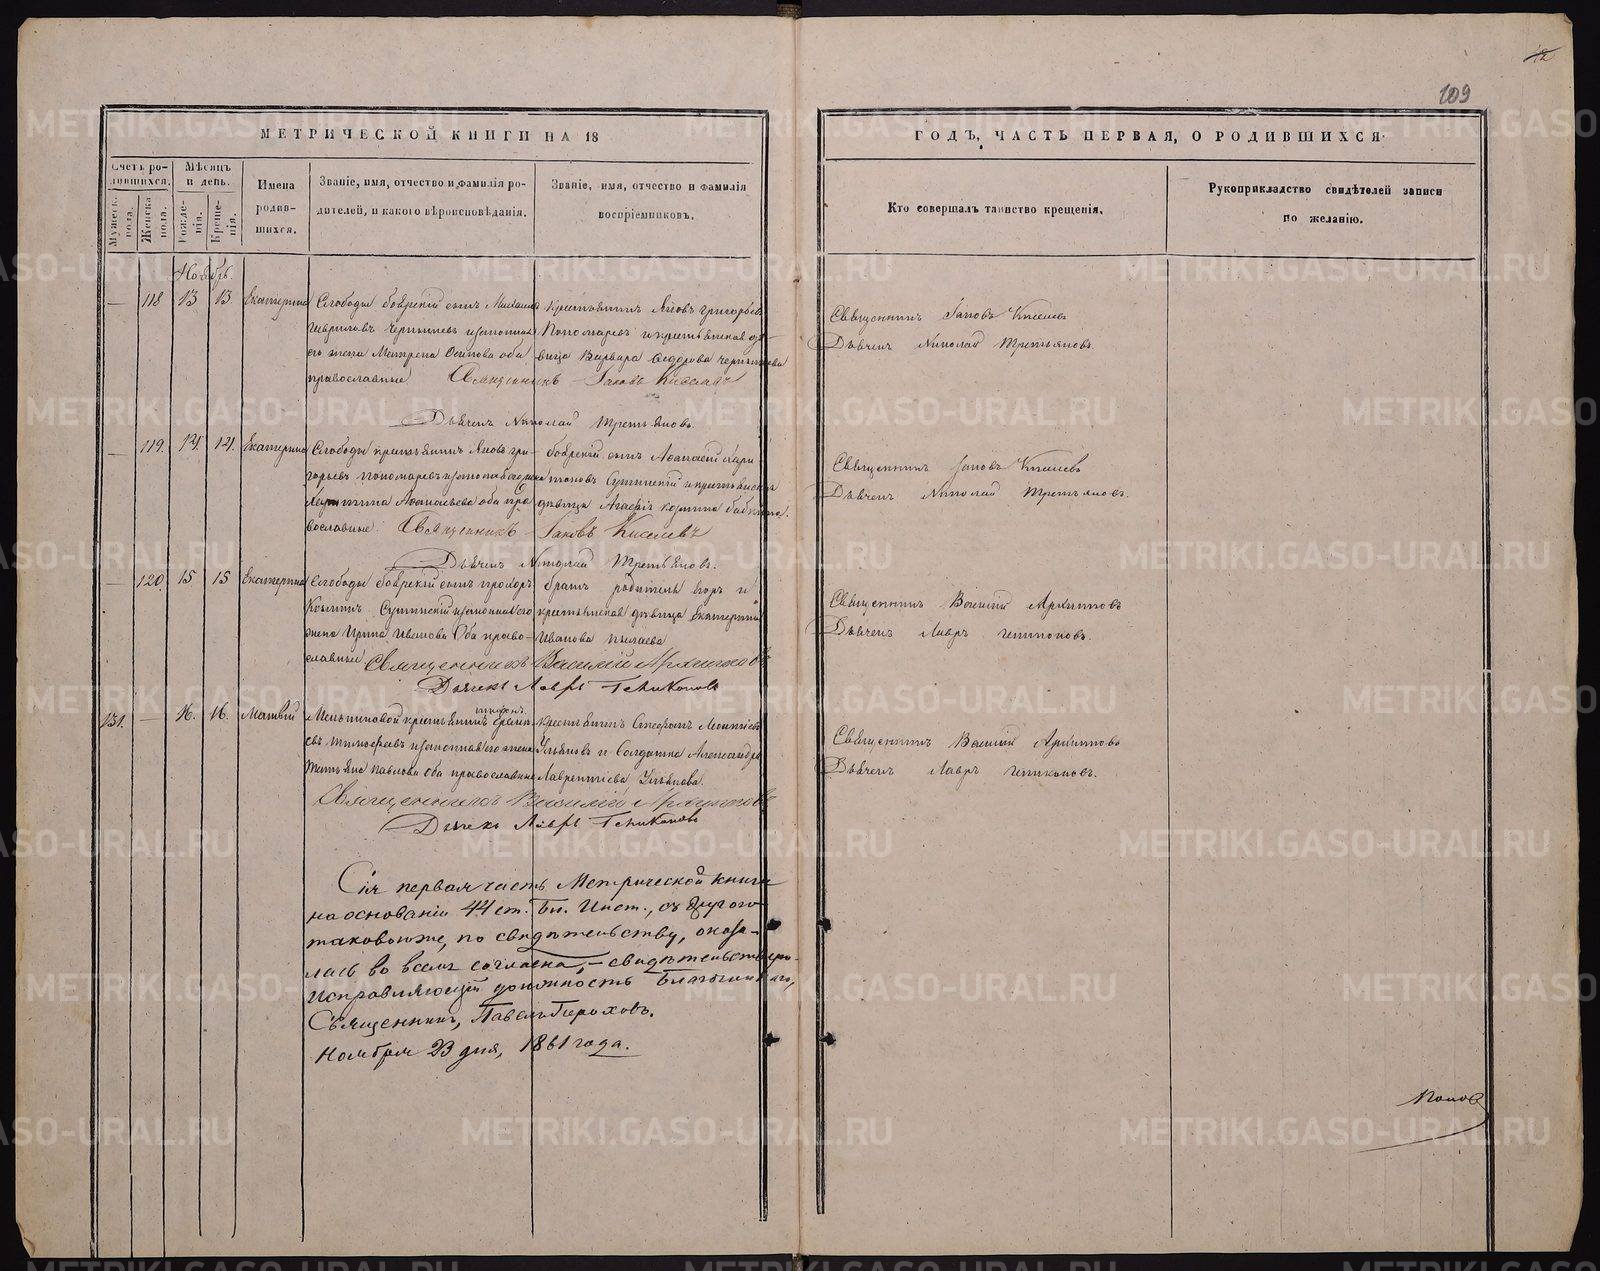 12
109
МЕТРИЧЕСКОЙ КНИГИ НА 18
ГОДЪ, ЧАСТЬ ПЕРВАЯ, О РОДИВШИХСЯ.
Счетъ родившихся.
Мѣсяцъ и день.
Мужеск. пола.
Женска пола.
Рожденія.
Крещенія.
Имена родившихся.
Званіе, имя, отчество и фамилія родителей, и какого вѣроисповѣданія.
Званіе, имя, отчество и фамилія воспріемниковъ.
Кто совершалъ таинство крещенія.
Рукоприкладство свидѣтелей записи по желанію.
Ноябрь.
— 118 13 13 Екатерина
Слободы боярскій сынъ Михаилъ
Гавриловъ Чернышевъ и законная
его жена Матрена Осипова оба
православные
Крестьянинъ Яковъ Григорьевъ
Пономаревъ и крестьянская дѣ-
вица Варвара Ѳедорова
Священникъ Іаковъ Киселевъ
Дьячекъ Николай Третьяковъ.
Священникъ Іаковъ Киселевъ
Дьячекъ Николай Третьяковъ.
— 119. 14. 14. Екатерина
Слободы крестьянинъ Яковъ Гри-
горьевъ Пономаревъ и законная его жена
Афанасьева оба пра-
вославные
боярскій сынъ Афанасій
Сутинскій и крестьянская
дѣвица
Священникъ Іаковъ Киселевъ
Дьячекъ Николай Третьяковъ.
Священникъ Іаковъ Киселевъ
Дьячекъ Николай Третьяковъ.
— 120. 15 15 Екатерина
Слободы боярскій сынъ Прохоръ
Сутинскій и законная его
жена Ирина Иванова Оба право-
славные
братъ родителя Егоръ и
крестьянская дѣвица Екатерина
Иванова
Священникъ Василій Архиповъ
Дьячекъ Лавръ
Священникъ Василій Архиповъ
Дьячекъ Лавръ
131. — 16. 16. Матвѣй
крестьянинъ
Тимофеевъ и законная его жена
Татьяна Павлова оба православные
крестьянинъ Стефанъ Леонтьевъ
Ульяновъ и Солдатка Александра
Лаврентіева Ульянова.
Священникъ Василій Архиповъ
Дьячекъ Лавръ
Священникъ Василій Архиповъ
Дьячекъ Лавръ
Сія первая часть Метрической книги
на основаніи 44 ст. Бл. Инст., съ другою
таковою же, по свидѣтельству, оказа-
лась во всемъ согласна, — свидѣтельствую
Исправляющій должность Благочиннаго,
Священникъ, Павелъ Гороховъ.
Ноября 23 дня, 1861 года.
Поповъ
METRIKI.GASO-URAL.RU